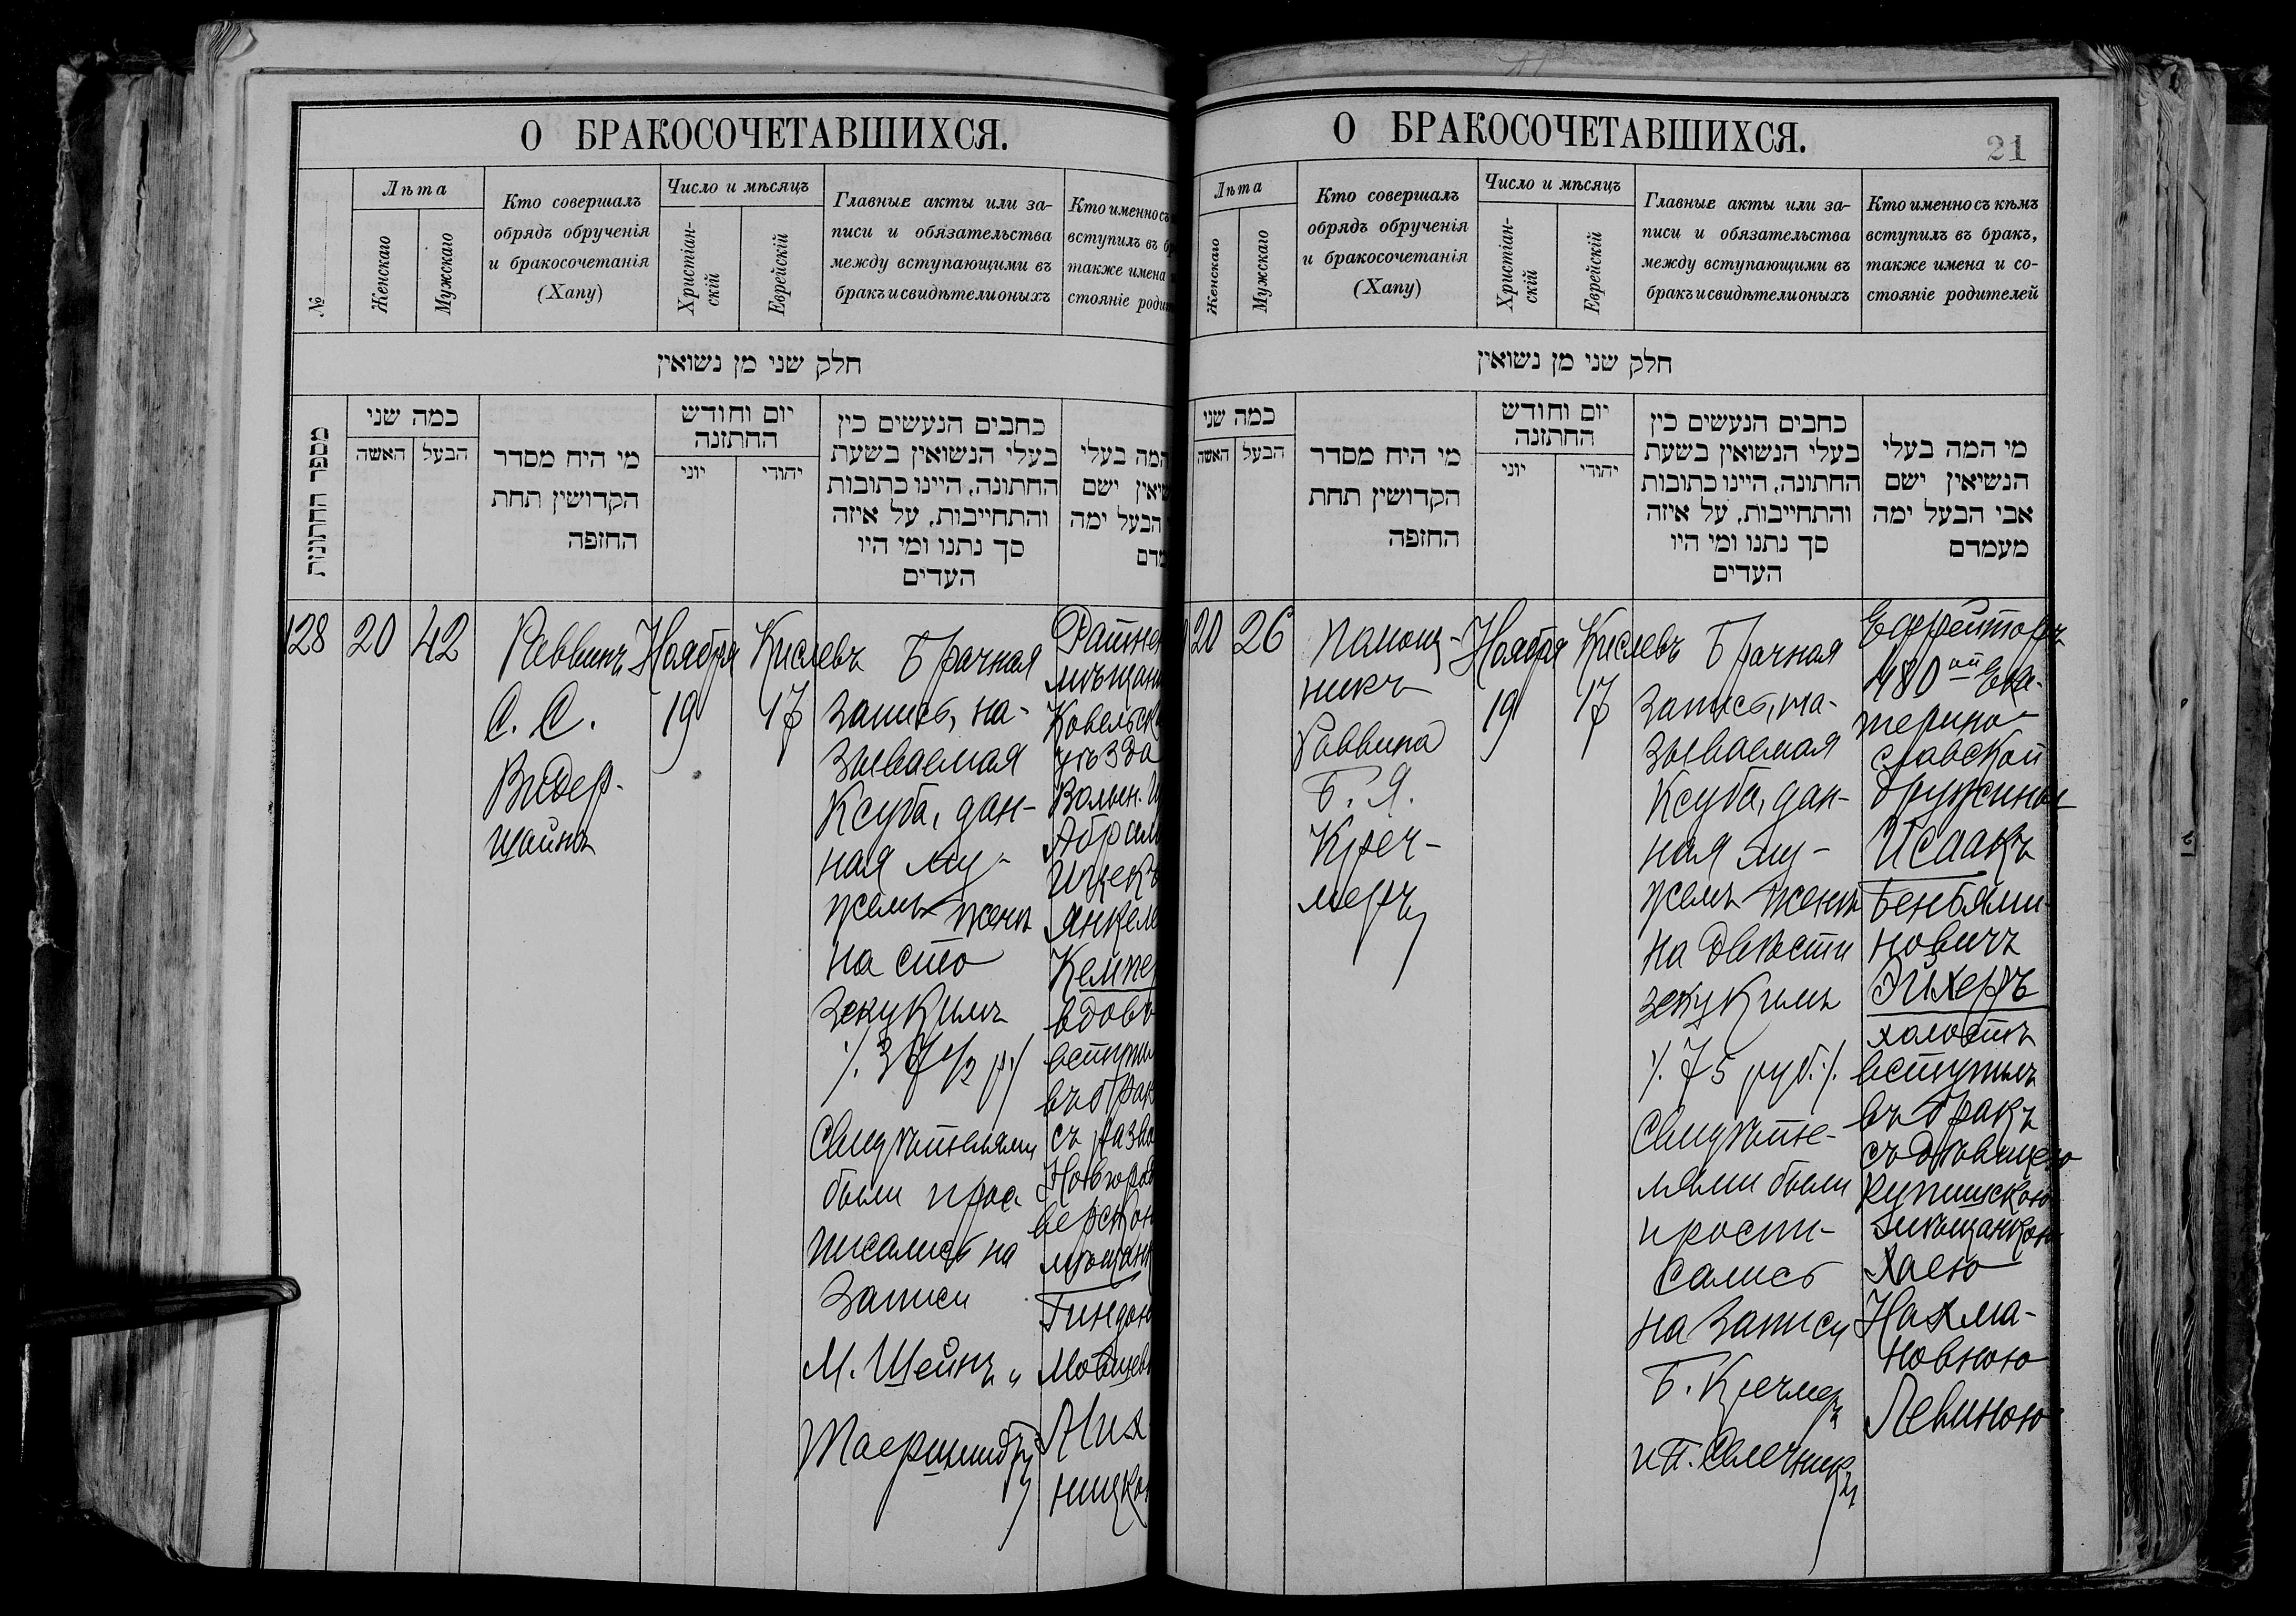 О БРАКОСОЧЕТАВШИХСЯ.
№
Лѣта
Женскаго
Мужскаго
Кто совершалъ
обрядъ обрученія
и бракосочетанія
(Хапу)
Число и мѣсяцъ
Христіан-
скій
Еврейскій
Главные акты или за-
писи и обязательства
между вступающими въ
бракъ и свидѣтели оныхъ
Кто именно съ
вступилъ въ
также имена
стояніе
חלק שני מן נשואין
מספר החתונות
כמה שני
האשה
הבעל
מי היח מסדר
הקדושין תחת
החזפה
יום וחודש
החתזנה
יוני
יהודי
כחבים הנעשים כין
בעלי הנשואין בשעת
החתונה, היינו כתובות
והתחייבות, על איזה
סך נתנו ומי היו
העדים
המה בעלי
ישם
הבעל ימה
128
20
42
Раввинъ
С. С.
Видер-
шайнъ
Ноября
19
Кислевъ
17
Брачная
запись, на-
зываемая
Ксуба, дан-
ная му-
жемъ женѣ
на сто
зекукимъ
/. 37 1/2 р./
Свидѣтелями
были и рос-
писались на
записи
М. Шейнъ и
уѣзда
Волын.
Ицекъ
съ
О БРАКОСОЧЕТАВШИХСЯ.
21
Лѣта
Женскаго
Мужскаго
Кто совершалъ
обрядъ обрученія
и бракосочетанія
(Хапу)
Число и мѣсяцъ
Христіан-
скій
Еврейскій
Главные акты или за-
писи и обязательства
между вступающими въ
бракъ и свидѣтели оныхъ
Кто именно съ кѣмъ
вступилъ въ бракъ,
также имена и со-
стояніе родителей
חלק שני מן נשואין
כמה שני
האשה
הבעל
מי היח מסדר
הקדושין תחת
החזפה
יום וחודש
החתזנה
יוני
יהודי
כחבים הנעשים כין
בעלי הנשואין בשעת
החתונה, היינו כתובות
והתחייבות, על איזה
סך נתנו ומי היו
העדים
מי המה בעלי
הנשיאין ישם
אבי הבעל ימה
מעמדם
20
26
Помощ-
никъ
Раввина
Б. Я.
Креч-
меръ
Ноября
19
Кислевъ
17
Брачная
запись, на-
зываемая
Ксуба, дан-
ная му-
жемъ женѣ
на двѣсти
зекукимъ
/. 75 руб. /.
Свидѣте-
лями были
и роспи-
сались
на записи
Б. Кречмеръ
и П.
Ефрейторъ
480ой Ека-
терино-
славской
дружины
Исаакъ
Беньями-
новичъ
Эйхеръ
холостъ
вступилъ
въ бракъ
съ дѣвицею
Купишскою
мѣщанкою
Хаею
Нахма-
новною
Левиною